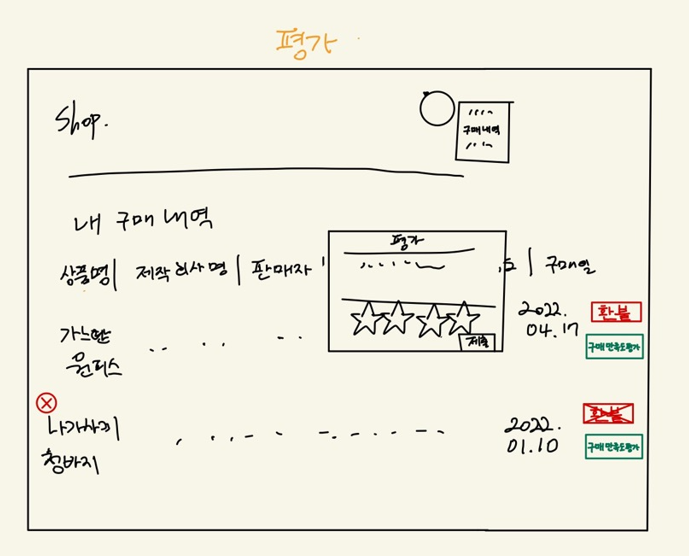 평가
Shop.
구매내역
내 구매내역
평가
상품명 | 제작회사명 | 판매자 | 구매일
가느란
원피스
2022.
04.17
환불
구매만족도평가
제출
나가사끼
청바지
2022.
01.10
환불
구매만족도평가